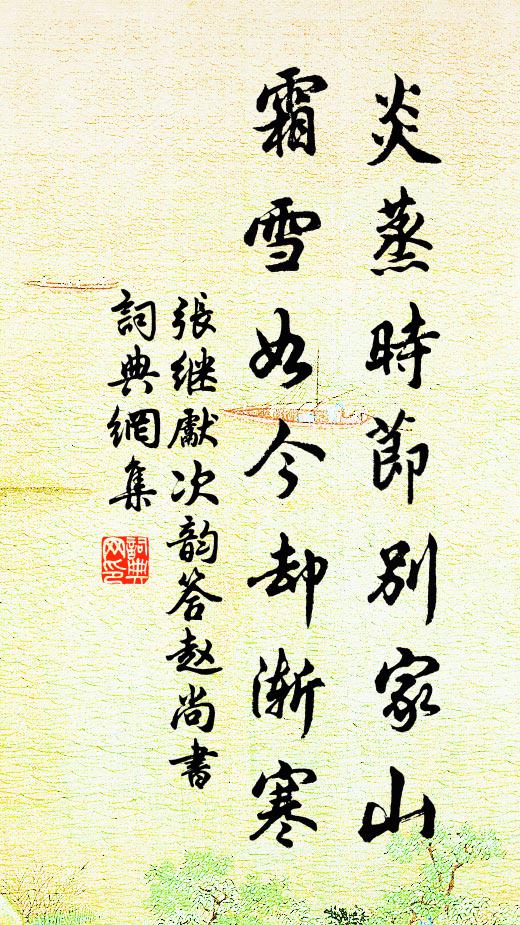 炎蒸時節別家山
霜雪如今却漸寒
張继獻次韵答赵尚書
詞典網集
詞典
网印